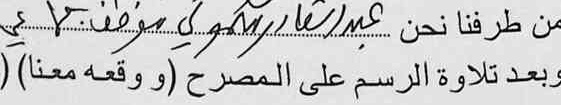 من طرفنا نحن عبد الستار الحكموكي موظف
وبعد تلاوة الرسم على المصرح (و وقعه معنا) (